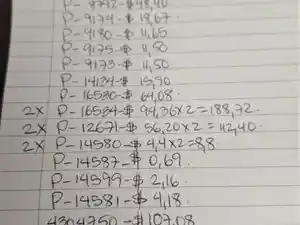 P- 9792-$ 48,40
P- 9174-$ 18,67
P- 9180-$ 11,65
P- 9175-$ 11,50
P- 9173-$ 11,50
P- 14134-$ 15,90
P- 16530-$ 64,08
2X P- 16534-$ 94,36x2=188,72.
2X P- 12671-$ 56,20x2=112,40.
2X P- 14580-$ 4,4x2=8,8
P- 14587-$ 0,69.
P- 14599-$ 2,16.
P- 14581-$ 4,18.
4304750-$107,08